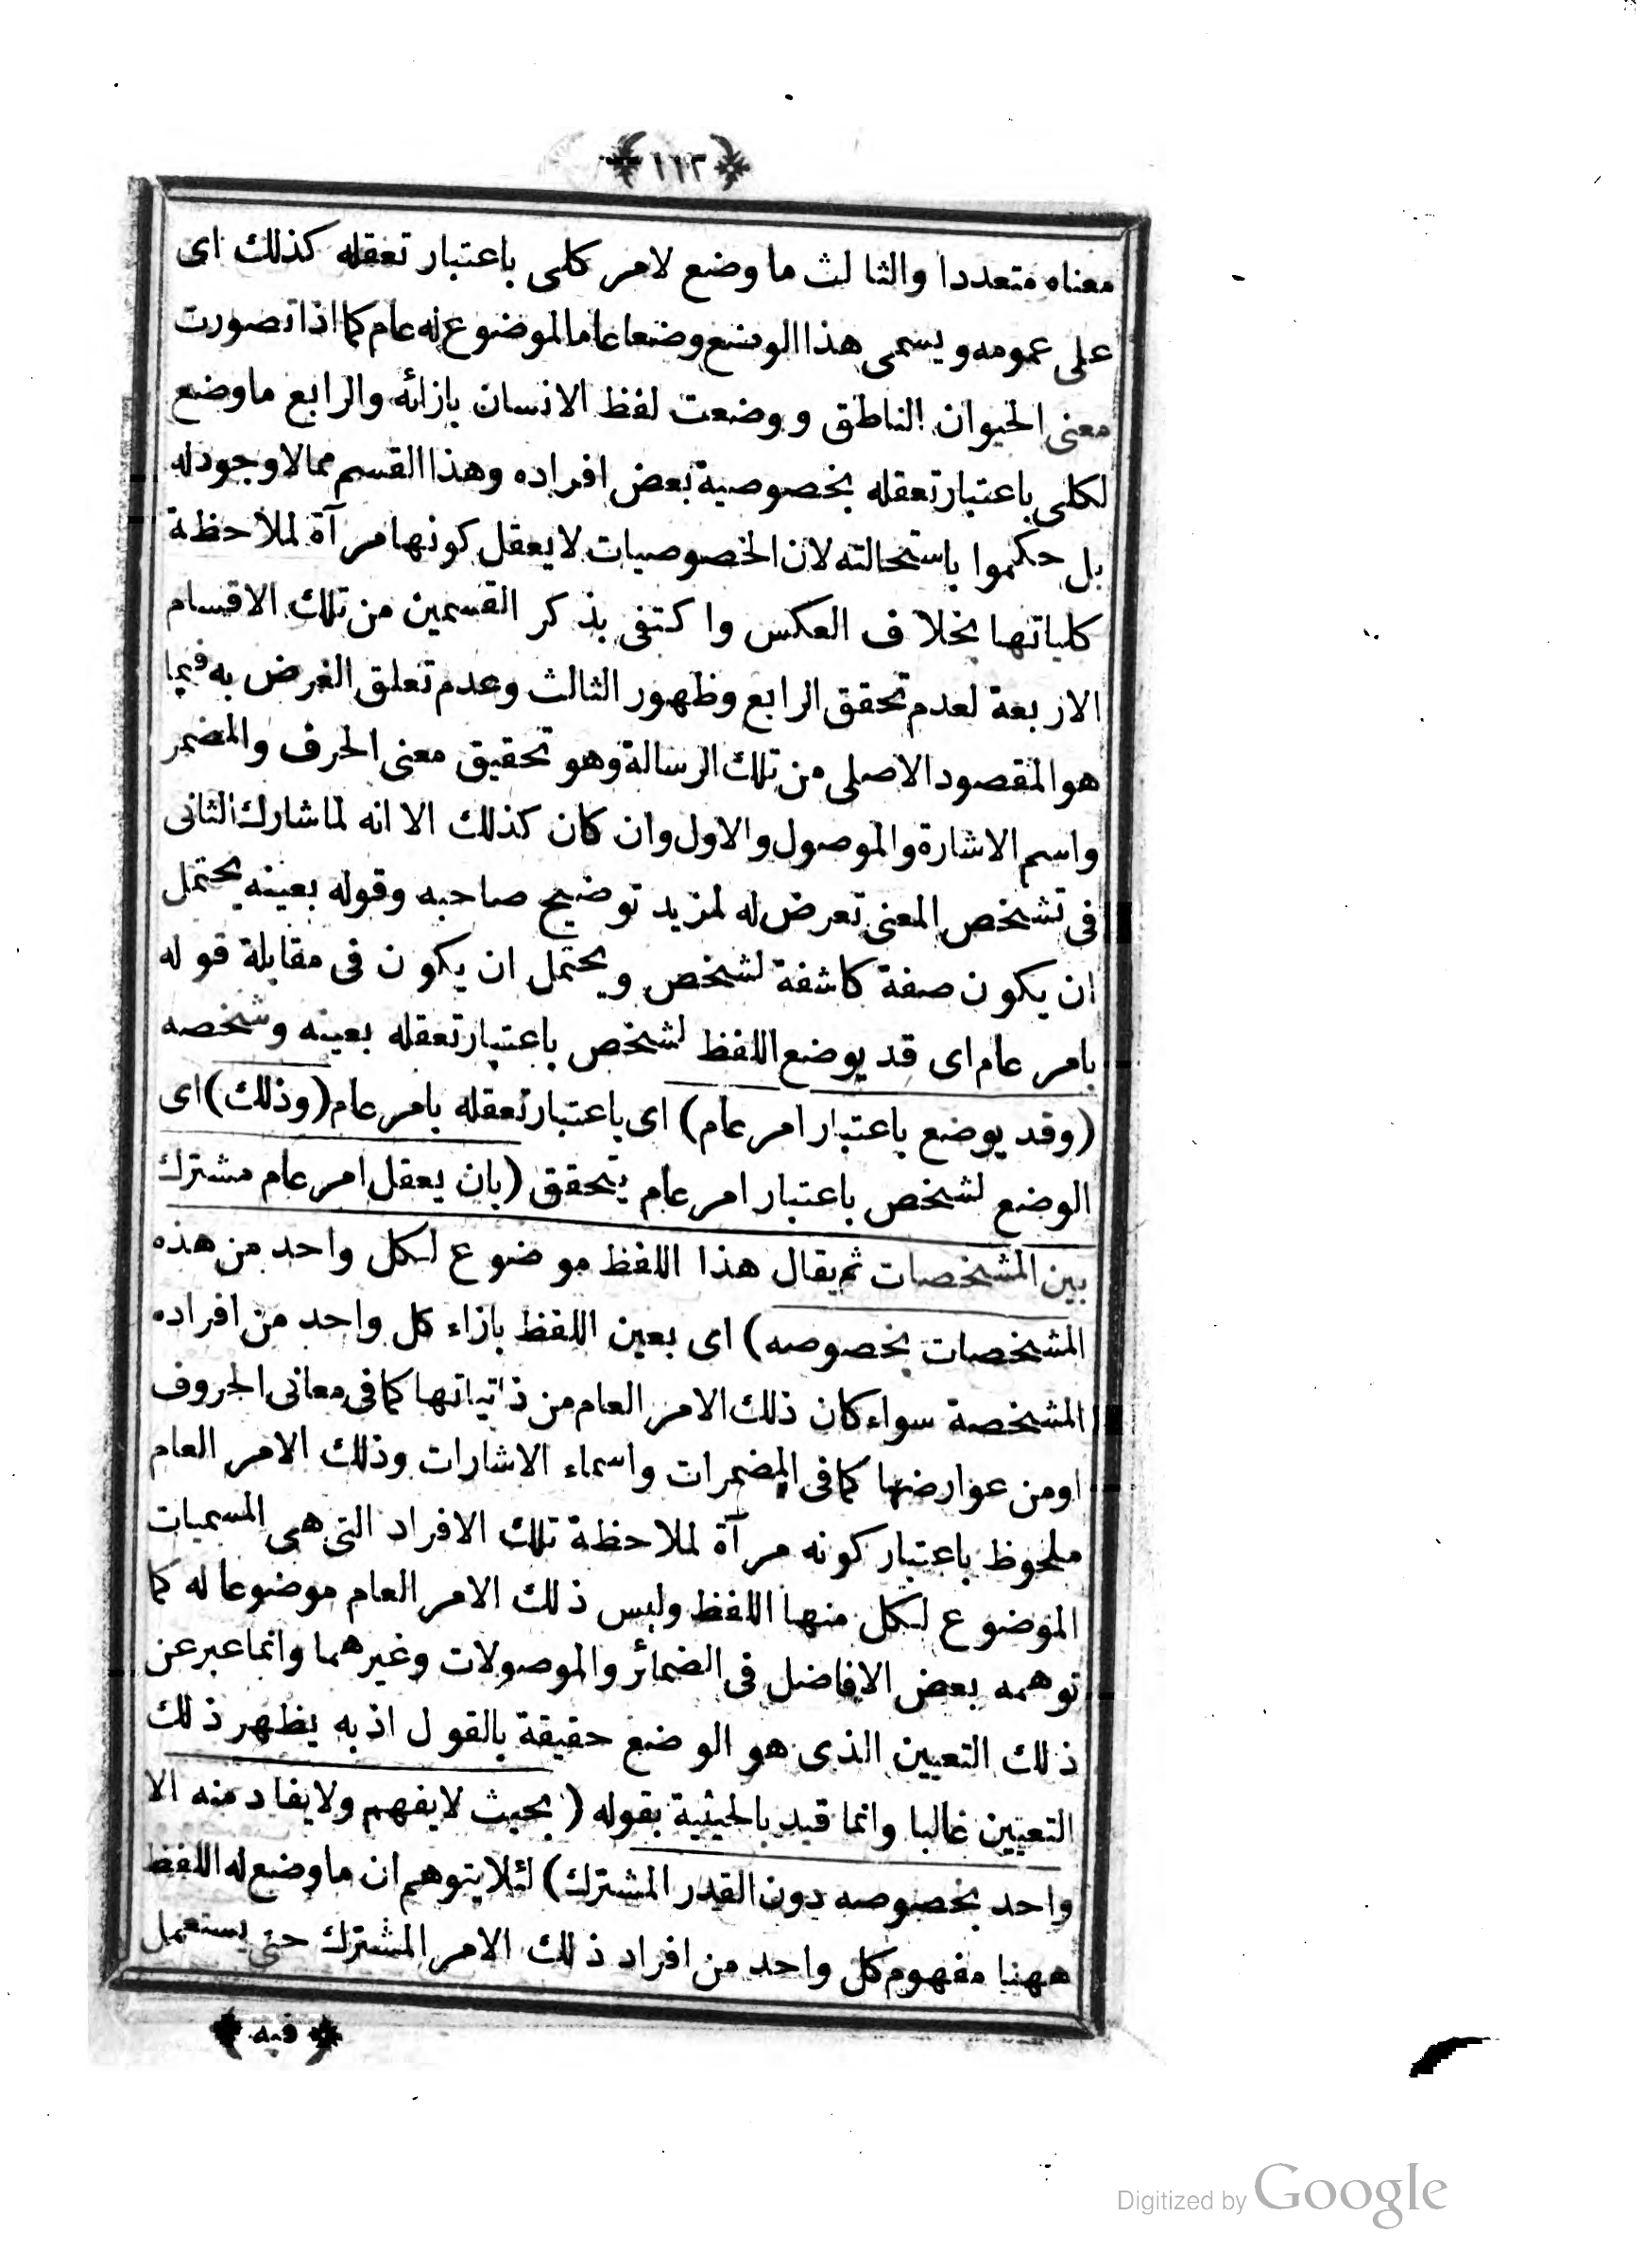 ﴿١١٢﴾
معناه متعددا والثالث ما وضع لامر كلى باعتبار تعقله كذلك اى
على عمومه ويسمى هذا الوضع وضعا عاما لموضوع له عام كما اذا تصورت
معنى الحيوان الناطق ووضعت لفظ الانسان بازائه والرابع ما وضع
لكلى باعتبار تعقله بخصوصية بعض افراده وهذا القسم مما لا وجود له
بل حكموا باستحالته لان الخصوصيات لا يعقل كونها مرآة لملاحظة
كلياتها بخلاف العكس واكتفى بذكر القسمين من تلك الاقسام
الاربعة لعدم تحقق الرابع وظهور الثالث وعدم تعلق الغرض به فيما
هو المقصود الاصلى من تلك الرسالة وهو تحقيق معنى الحرف والمضمر
واسم الاشارة والموصول والاول وان كان كذلك الا انه لما شارك الثانى
فى تشخص المعنى تعرض له لمزيد توضيح صاحبه وقوله بعينه يحتمل
ان يكون صفة كاشفة لشخص ويحتمل ان يكون فى مقابلة قوله
بامر عام اى قد يوضع اللفظ لشخص باعتبار تعقله بعينه وشخصه
(وقد يوضع باعتبار امر عام) اى باعتبار تعقله بامر عام (وذلك) اى
الوضع لشخص باعتبار امر عام يتحقق (بان يعقل امر عام مشترك
بين المشخصات ثم يقال هذا اللفظ موضوع لكل واحد من هذه
المشخصات بخصوصه) اى بعين اللفظ بازاء كل واحد من افراده
المشخصة سواء كان ذلك الامر العام من ذاتياتها كما فى معانى الحروف
اومن عوارضها كما فى المضمرات واسماء الاشارات وذلك الامر العام
ملحوظ باعتبار كونه مرآة لملاحظة تلك الافراد التى هى المسميات
الموضوع لكل منها اللفظ وليس ذلك الامر العام موضوعا له كما
توهمه بعض الافاضل فى الضمائر والموصولات وغيرهما وانما عبر عن
ذلك التعيين الذى هو الوضع حقيقة بالقول اذ به يظهر ذلك
التعيين غالبا وانما قيد بالحيثية بقوله (بحيث لا يفهم ولا يفاد منه الا
واحد بخصوصه دون القدر المشترك) لئلا يتوهم ان ما وضع له اللفظ
ههنا مفهوم كل واحد من افراد ذلك الامر المشترك حتى يستعمل
﴿فيه﴾
Digitized by Google